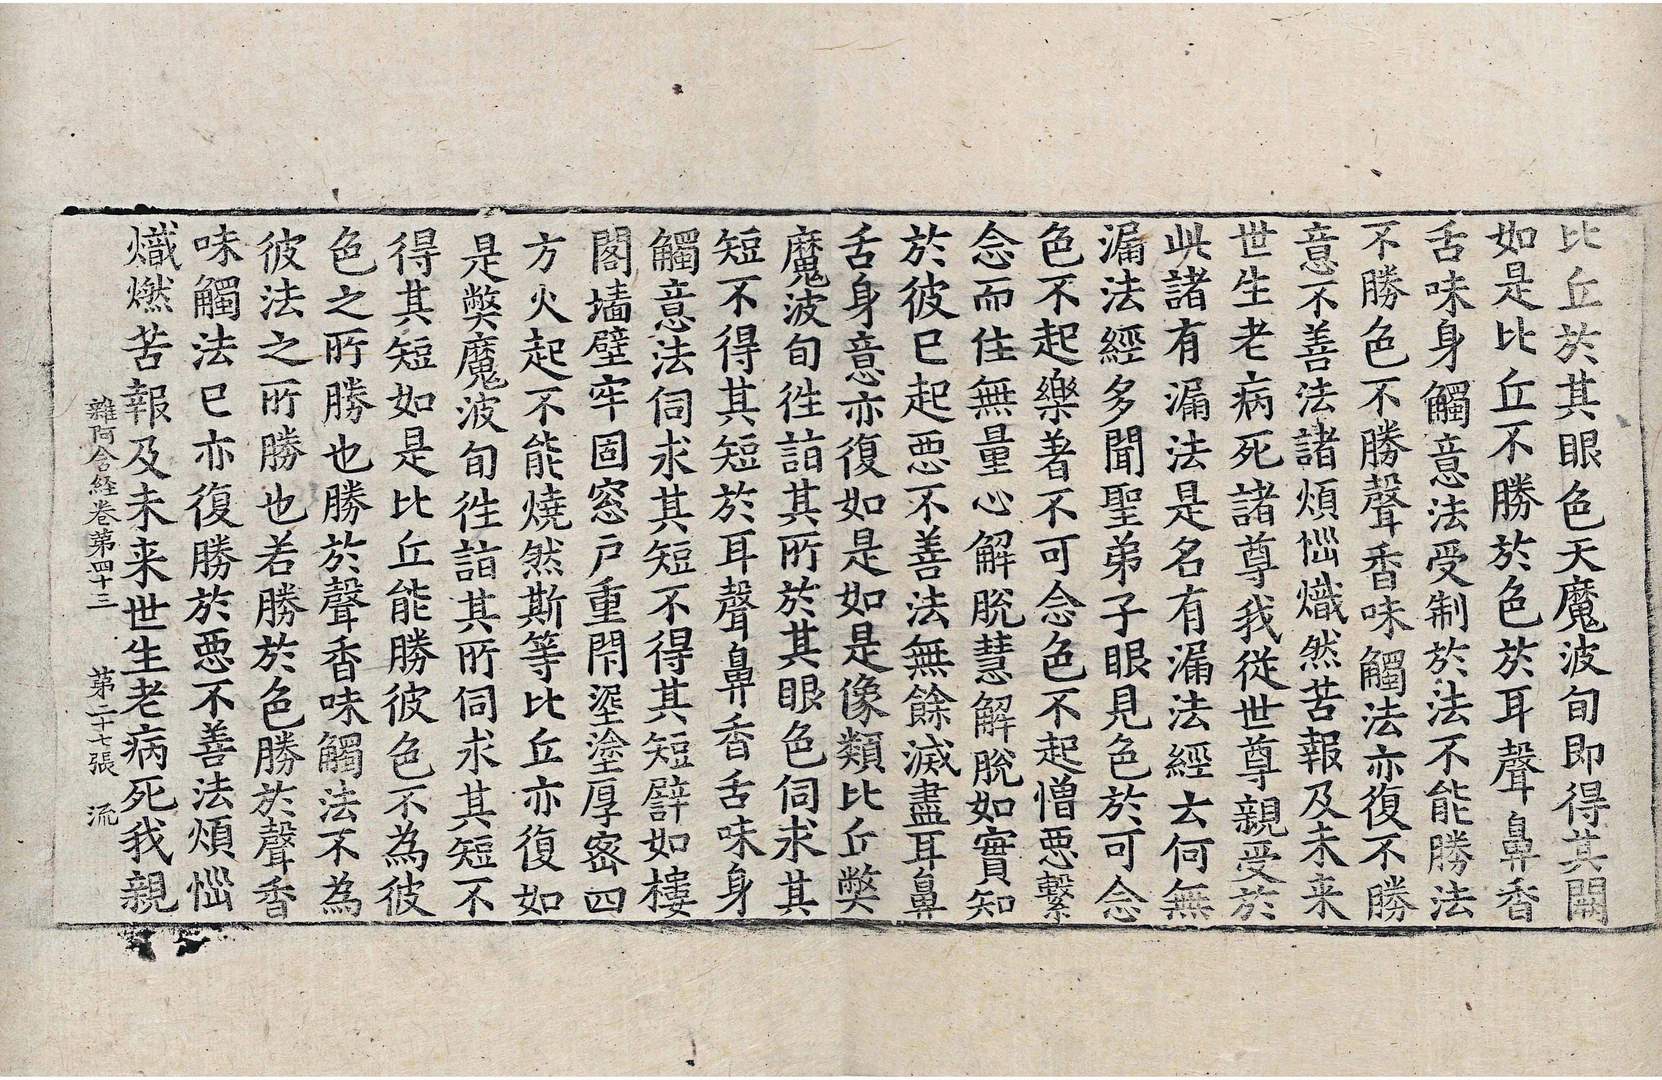 比丘於其眼色天魔波旬即得其闕
如是比丘不勝於色於耳聲鼻香
舌味身觸意法受制於法不能勝法
不勝色不勝聲香味觸法亦復不勝
意不善法諸煩惱熾然苦報及未来
世生老病死諸尊我從世尊親受於
此諸有漏法是名有漏法經云何無
漏法經多聞聖弟子眼見色於可念
色不起樂著不可念色不起憎惡繫
念而住無量心解脫慧解脫如實知
於彼已起惡不善法無餘滅盡耳鼻
舌身意亦復如是如是像類比丘弊
魔波旬徃詣其所於其眼色伺求其
短不得其短於耳聲鼻香舌味身
觸意法伺求其短不得其短譬如樓
閣墻壁牢固窓戶重閇埿塗厚密四
方火起不能燒然斯等比丘亦復如
是弊魔波旬徃詣其所伺求其短不
得其短如是比丘能勝彼色不為彼
色之所勝也勝於聲香味觸法不為
彼法之所勝也若勝於色勝於聲香
味觸法已亦復勝於惡不善法煩惱
熾燃苦報及未来世生老病死我親
雜阿含経卷第四十三 第二十七張 流